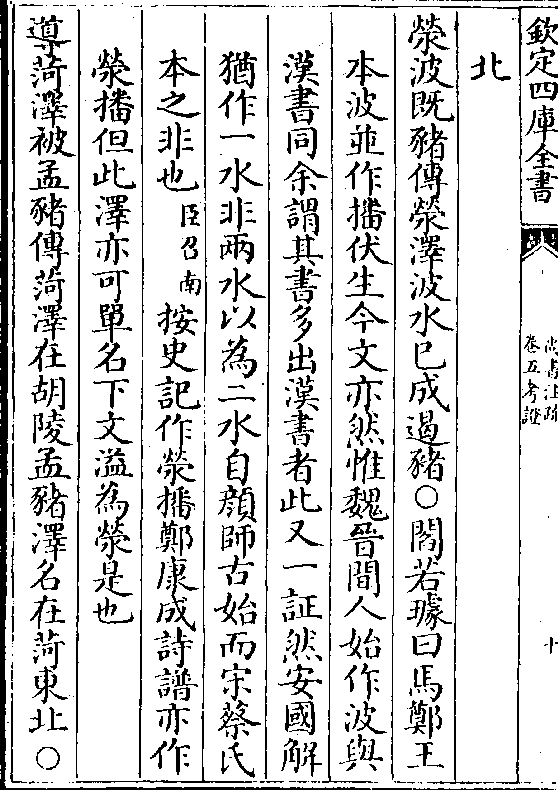 欽定四庫全書
尚書注疏
卷五考證
十
北
滎波既豬傳滎澤波水已成遏豬○閻若璩曰馬鄭王
本波並作播伏生今文亦然惟魏晉間人始作波與
漢書同余謂其書多出漢書者此又一証然安國解
猶作一水非兩水以為二水自顔師古始而宋蔡氏
本之非也臣召南按史記作滎播鄭康成詩譜亦作
滎播但此澤亦可單名下文溢為滎是也
導菏澤被孟豬傳菏澤在胡陵孟豬澤名在菏東北○